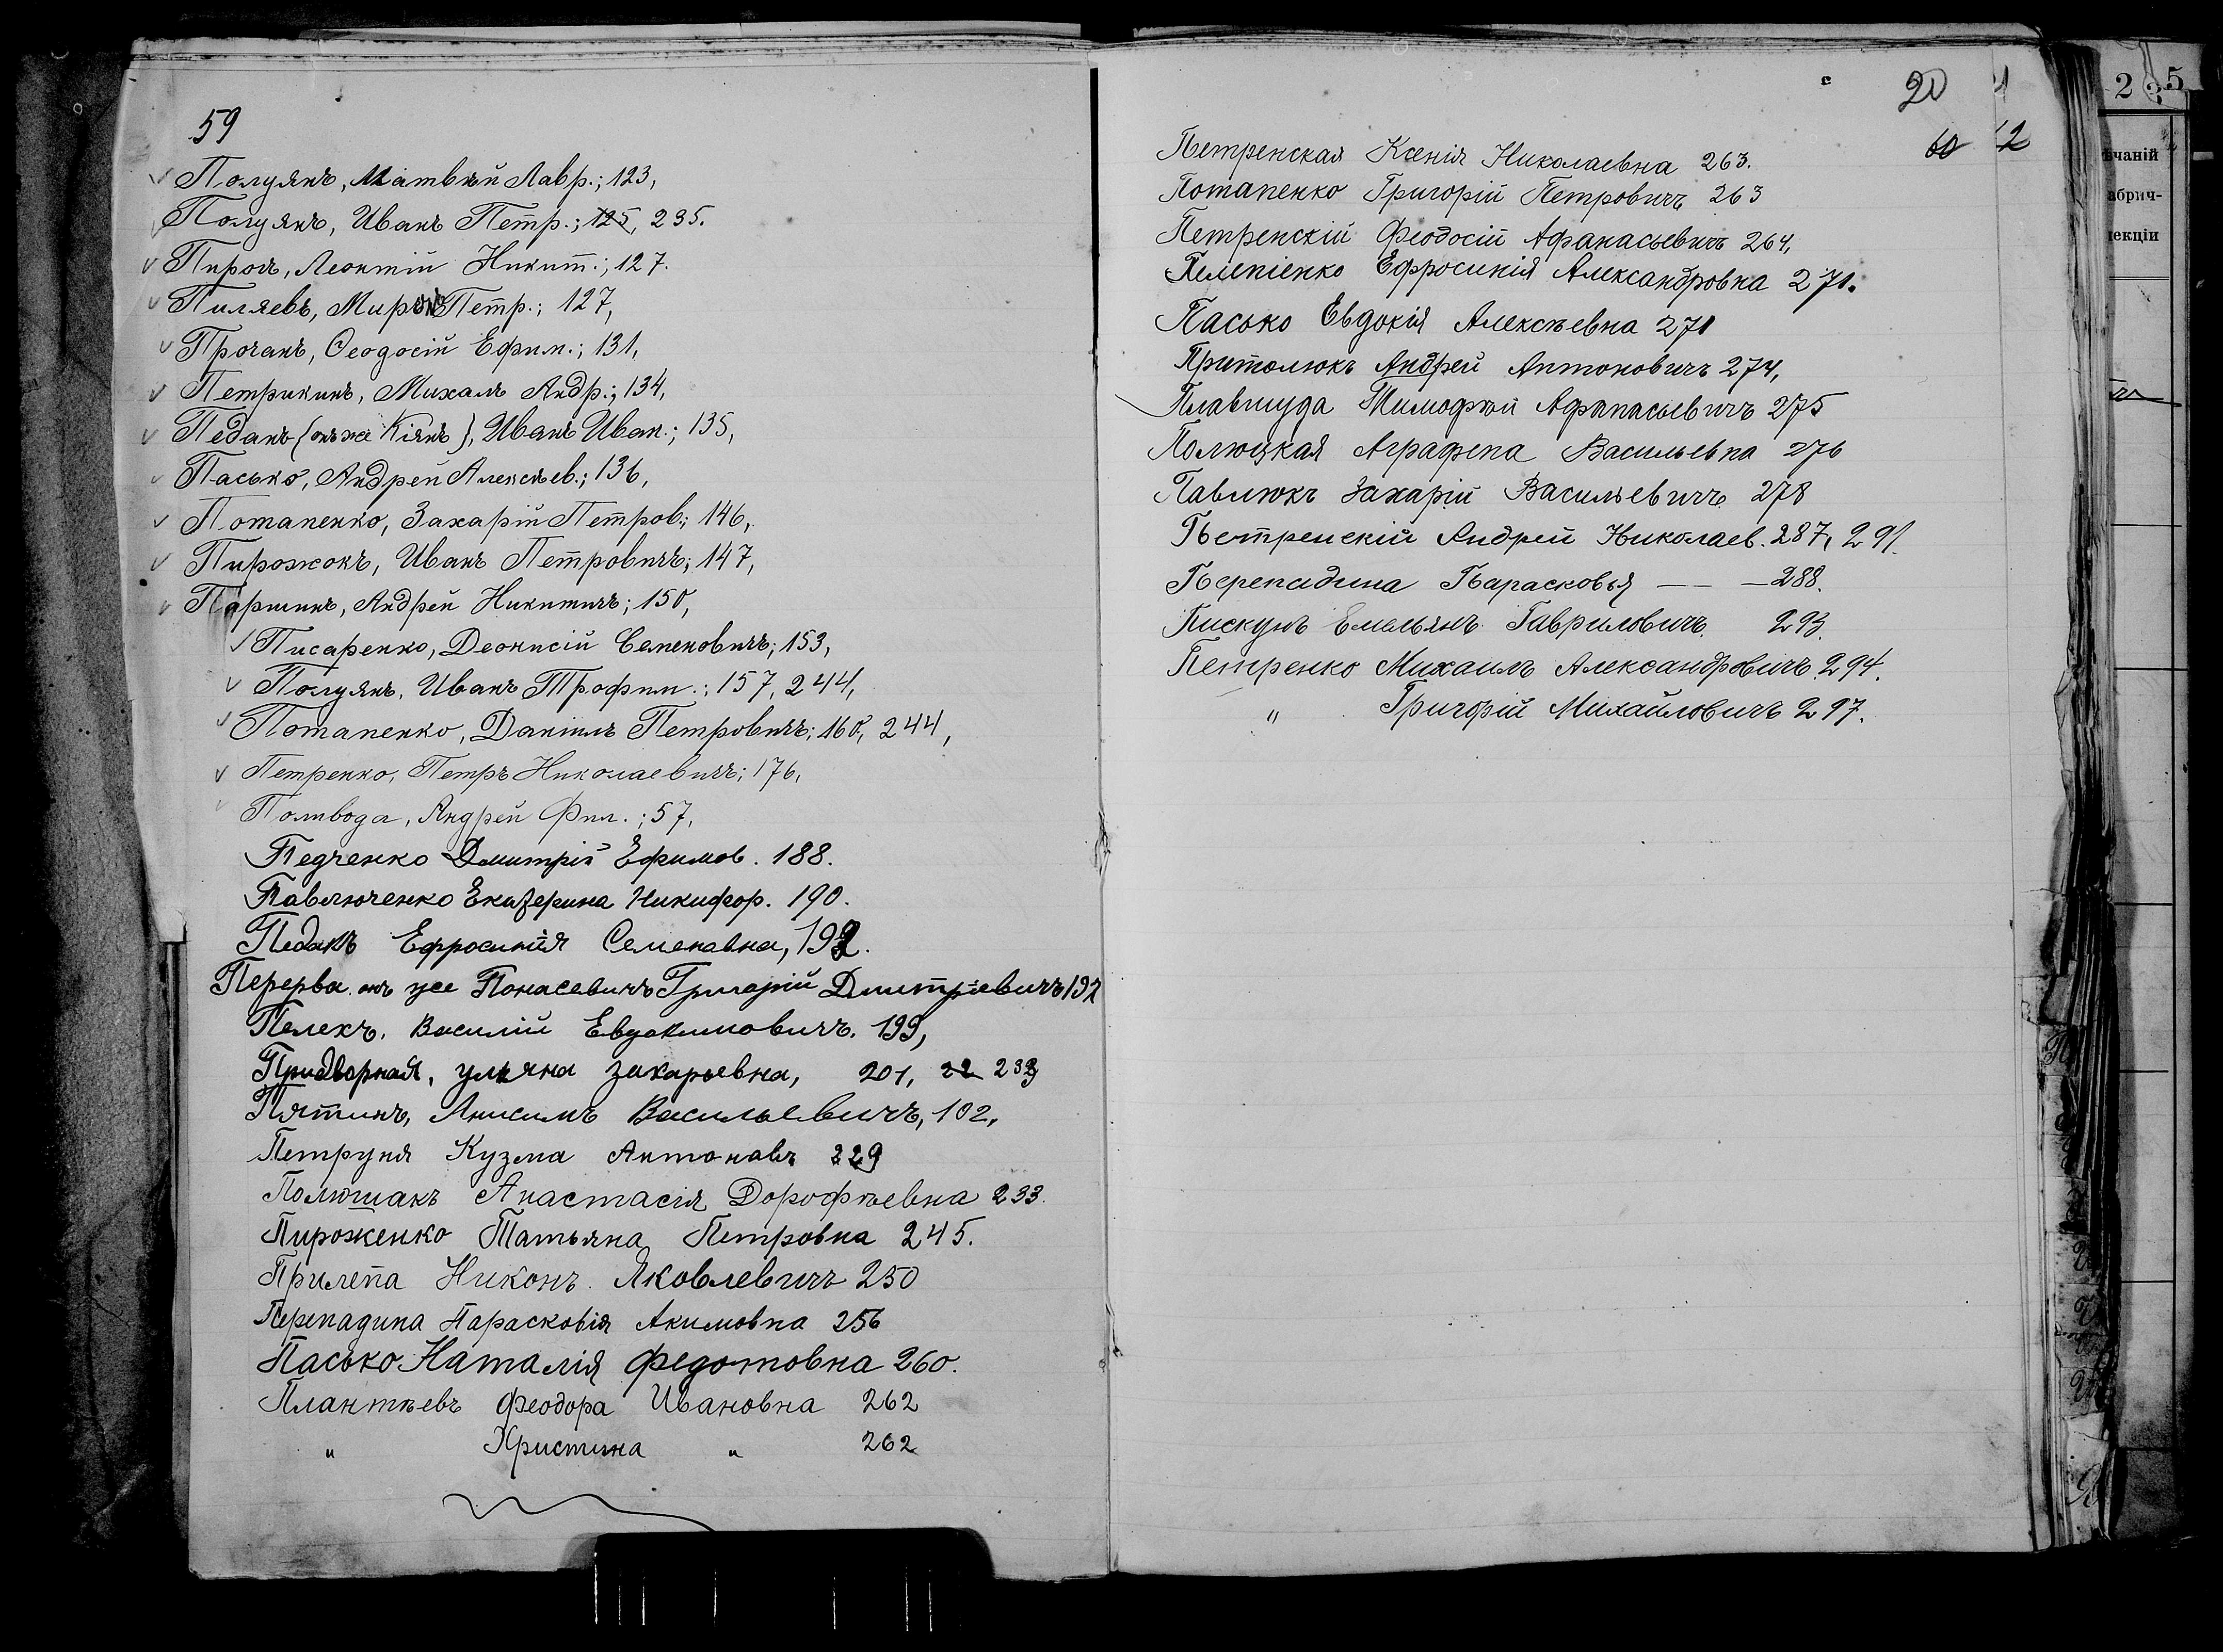 59
Полуянъ, Матвѣй Лавр.; 123,
Полуянъ, Иванъ Петр.; 125, 235.
Пироль, Леонтій Никит.; 127.
Пиляевъ, Миронъ Петр.; 127,
Прочанъ, Ѳеодосій Ефим.; 131,
Петрикинъ, Михаилъ Андр.; 134,
Педанъ (онъ же Кіянъ), Иванъ Иван.; 135,
Пасько, Андрей Алексѣев.; 136,
Потапенко, Захарій Петров.; 146,
Пирожокъ, Иванъ Петровичъ; 147,
Паршинъ, Андрей Никитичъ; 150,
Писаренко, Деонисій Семеновичъ; 153,
Полуянъ, Иванъ Трофим.; 157, 244,
Потапенко, Даніилъ Петровичъ; 160, 244,
Петренко, Петръ Николаевичъ; 176,
Поливода, Андрей Фил.; 57,
Педченко Дмитрій Ефимов. 188.
Павлюченко Екатерина Никифор. 190.
Педанъ Ефросинія Семенавна, 192.
Перерва онъ же Понасевичъ Григорій Дмитріевичъ 192
Пелехъ, Василій Евдокимовичъ. 199,
Придворная, Ульяна Захарьевна, 201, 22 233
Пятинъ, Анисимъ Васильевичъ, 102,
Петруня Кузма Антонавъ 229
Полюшакъ Анастасія Дорофѣевна 233.
Пироженко Татьяна Петровна 245.
Прилепа Никонъ Яковлевичъ 250
Перепадина Парасковія Акимовна 256
Пасько Наталія Федотовна 260.
Плантѣевъ Феодора Ивановна 262
" Христина " 262
20
60 12
Петренская Ксенія Николаевна 263.
Потапенко Григорій Петровичъ 263
Петренскій Феодосій Афанасьевичъ 264,
Пелепіенко Ефросинія Александровна 271.
Пасько Евдокія Алексѣевна 271
Притолюкъ Андрей Антоновичъ 274,
Плавшуда Тимофѣй Афанасьевичъ 275
Полюцкая Аграфена Васильевна 276
Павлюкъ Захарій Васильевичъ 278
Петренскій Андрей Николаев. 287, 291.
Перепадина Парасковья — — 288.
Пискунъ Емельянъ Гавриловичъ 293.
Петренко Михаилъ Александровичъ 294.
" Григорій Михайловичъ 297.
2 5
чаній
абрич-
екціи